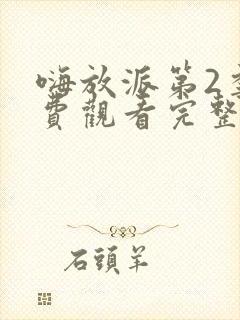 嗨放派第2季
費觀看完整
石頭羊